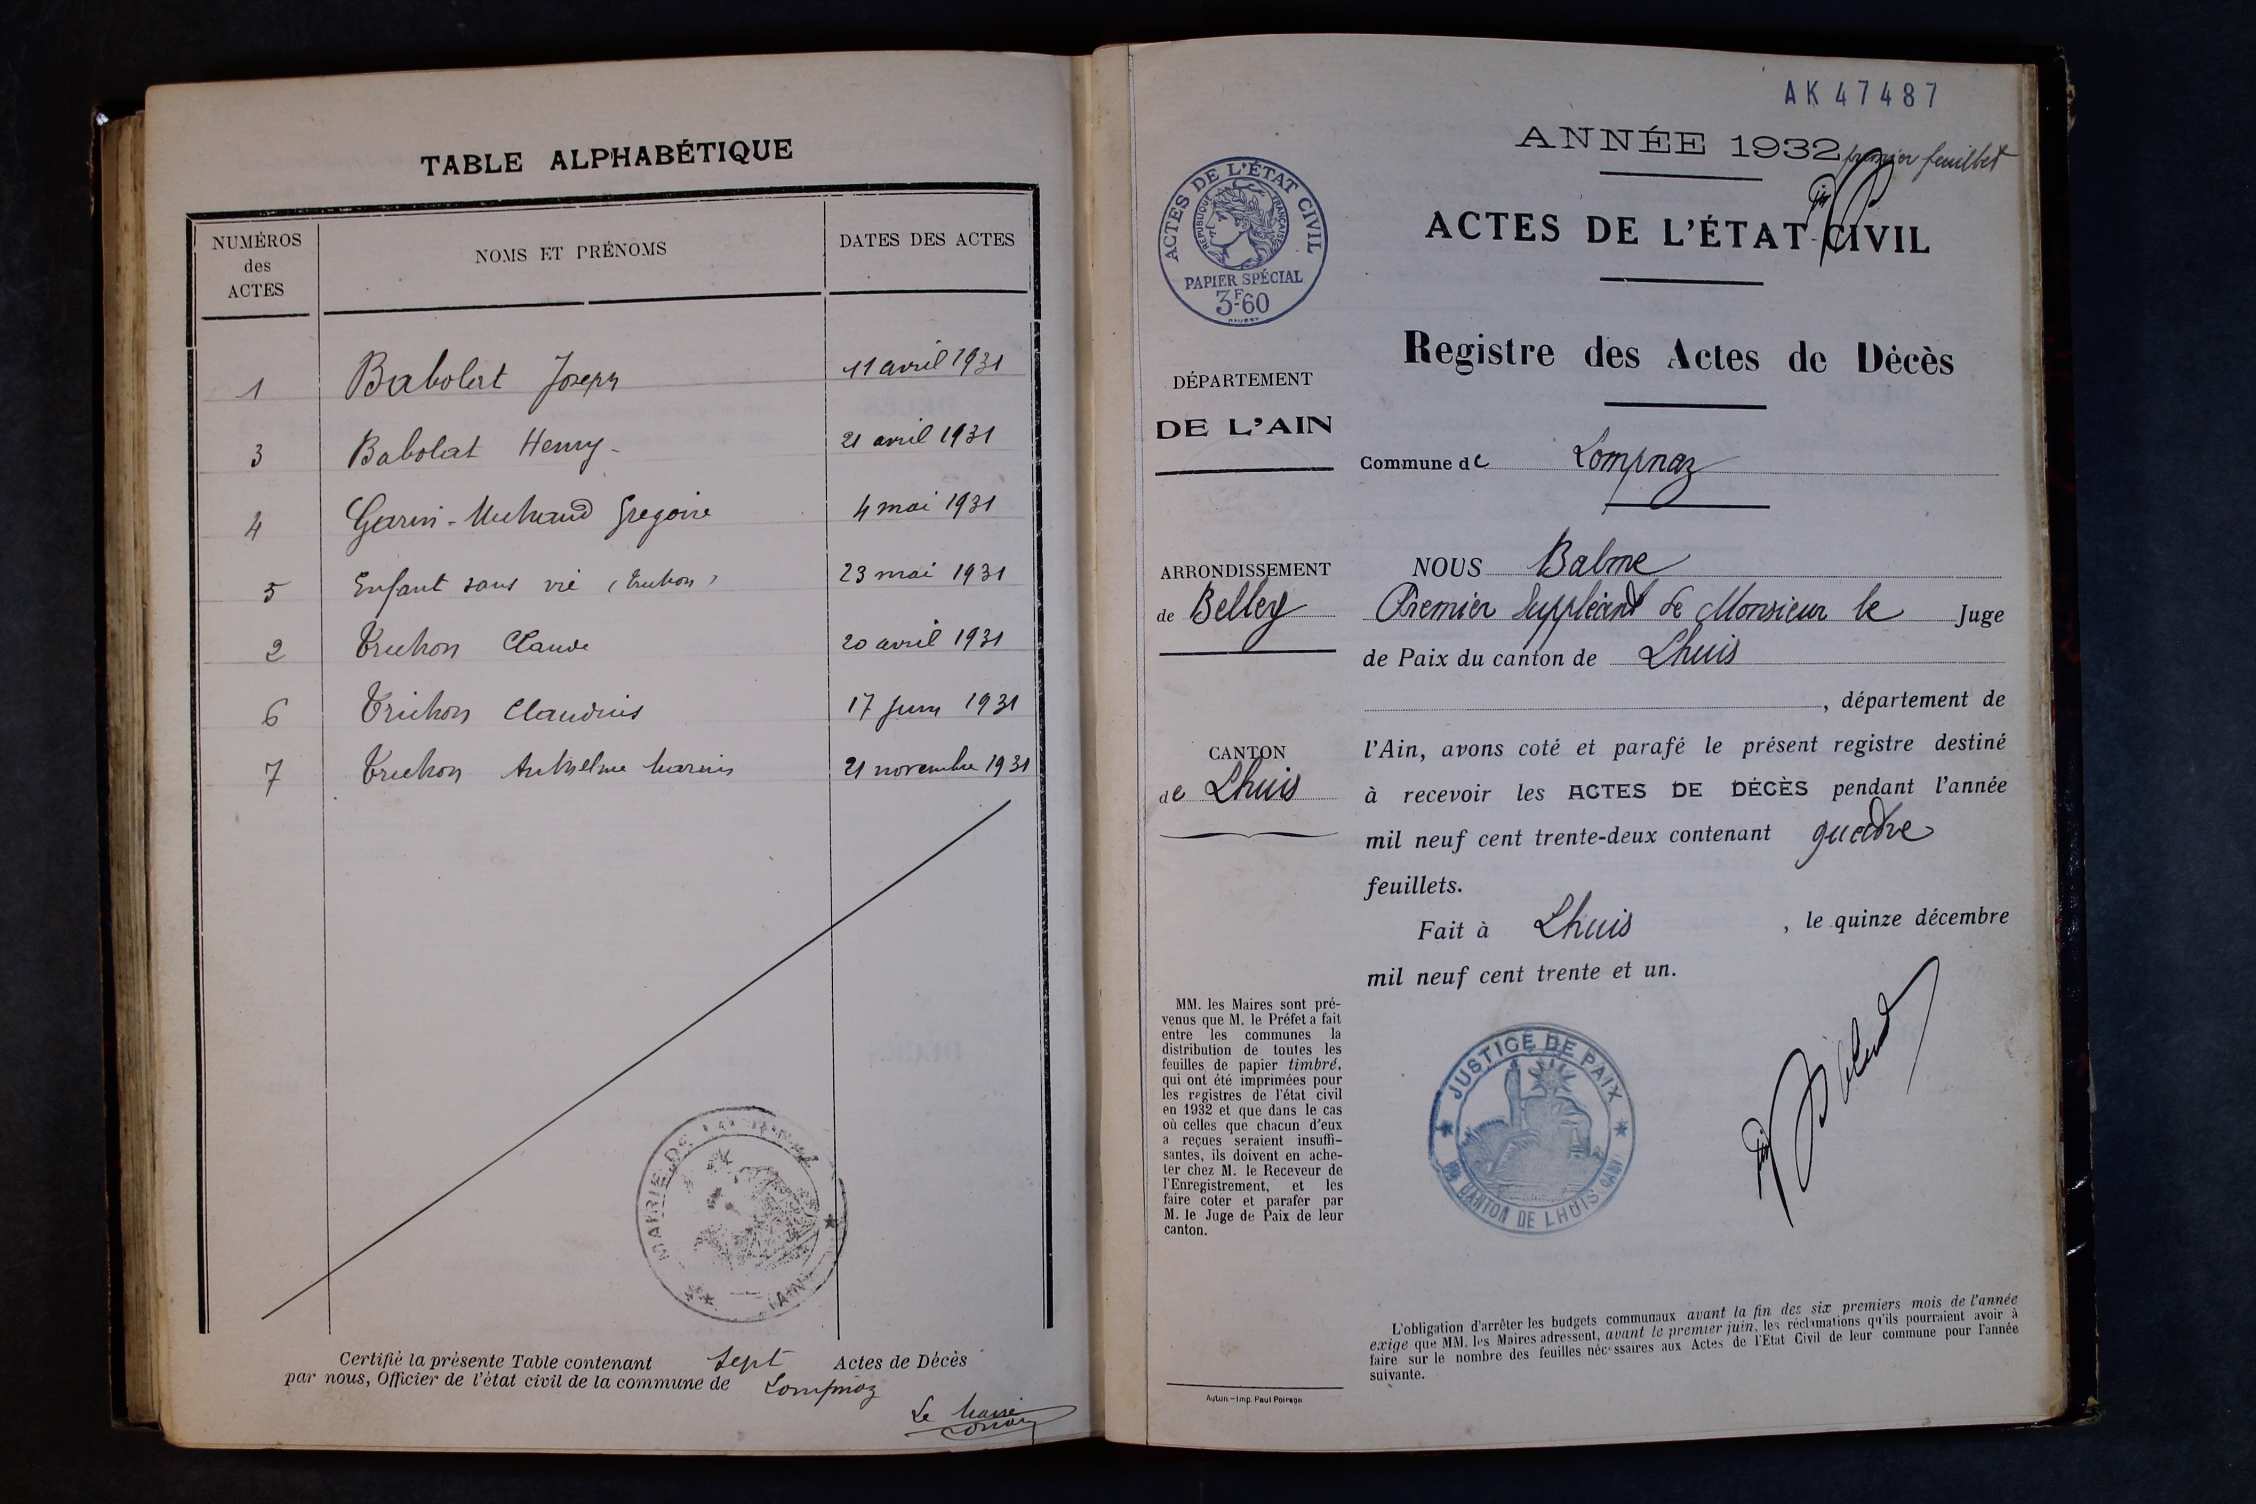 TABLE ALPHABÉTIQUE
NUMÉROS
des
ACTES
NOMS ET PRÉNOMS
DATES DES ACTES
1 Babolat Joseph 11 avril 1931
3 Babolat Henry - 21 avril 1931
4 Garin - Michaud Gregoire 4 mai 1931
5 Enfant sans vie (Truchon) 23 mai 1931
2 Truchon Claude 20 avril 1931
6 Truchon Claudius 17 Juin 1931
7 Truchon Anthelme Marius 21 novembre 1931
MAIRIE DE LOMPNAZ
(AIN)
Certifié la présente Table contenant sept Actes de Décès
par nous, Officier de l'état civil de la commune de Lompnaz
Le Maire
AK 47487
ANNÉE 1932 premier feuillet
ACTES DE L'ÉTAT CIVIL
RÉPUBLIQUE FRANÇAISE
PAPIER SPÉCIAL
3F.60
ACTES DE L'ÉTAT-CIVIL
Registre des Actes de Décès
DÉPARTEMENT
DE L'AIN
Commune de Lompnaz
ARRONDISSEMENT
de Belley
CANTON
de Lhuis
NOUS Balme
Premier Suppléant de Monsieur le Juge
de Paix du canton de Lhuis
, département de
l'Ain, avons coté et parafé le présent registre destiné
à recevoir les ACTES DE DÉCÈS pendant l'année
mil neuf cent trente-deux contenant quatre
feuillets.
Fait à Lhuis , le quinze décembre
mil neuf cent trente et un.
MM. les Maires sont pré-
venus que M. le Préfet a fait
entre les communes la
distribution de toutes les
feuilles de papier timbré,
qui ont été imprimées pour
les registres de l'état civil
en 1932 et que dans le cas
où celles que chacun d'eux
a reçues seraient insuffi-
santes, ils doivent en ache-
ter chez M. le Receveur de
l'Enregistrement, et les
faire coter et parafer par
M. le Juge de Paix de leur
canton.
JUSTICE DE PAIX
DU CANTON DE LHUIS (AIN)
L'obligation d'arrêter les budgets communaux avant la fin des six premiers mois de l'année
exige que MM. les Maires adressent, avant le premier juin, les réclamations qu'ils pourraient avoir à
faire sur le nombre des feuilles nécessaires aux Actes de l'Etat Civil de leur commune pour l'année
suivante.
Autun.—Imp. Paul Poirson